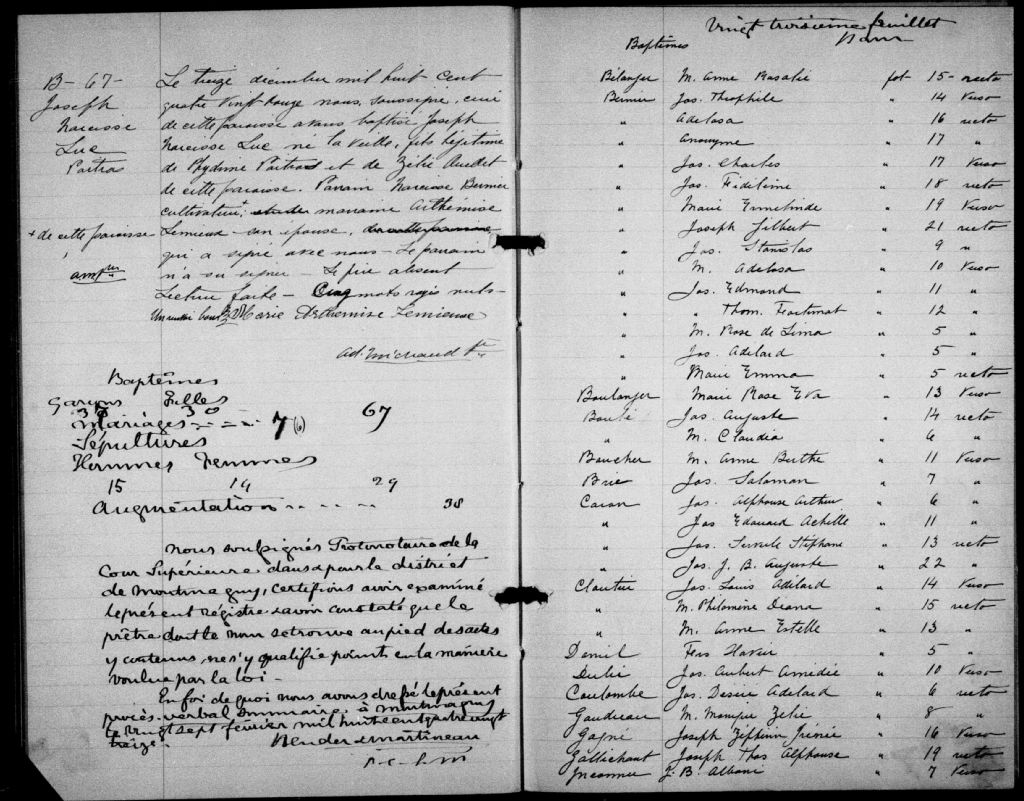 B - 67 -
Joseph
Narcisse
Luc
Poitras
+ de cette paroisse
Le treize décembre mil huit cent
quatre vingt douze nous, soussigné, curé
de cette paroisse avons baptisé Joseph
Narcisse Luc né la veille, fils légitime
de Phydime Poitras et de Zélie Audet
de cette paroisse. Parrain Narcisse Bernier
cultivateur +, marraine Arthémise
Lemieux son épouse, de cette paroisse
qui a signé avec nous - Le parrain
n'a su signer - Le père absent
Lecture faite - Cinq mots rayés nuls -
Un renvoi bon Marie Arthemise Lemieux
Ad. Michaud Ptre
Baptêmes
Garçons Filles
30 67
Mariages 7 (6)
Sépultures
Hommes Femmes
15 14 29
Augmentation 38
Nous soussignés Protonotaire de la
Cour Supérieure dans & pour le district
de Montmagny, certifions avoir examiné
le présent régistre & avoir constaté que le
prêtre dont le nom se trouve au pied des actes
y contenus, ne s'y qualifie point en la manière
voulue par la loi -
En foi de quoi nous avons dressé le présent
procès-verbal sommaire à Montmagny
ce vingt sept février mil huit cent quatre vingt
treize.
Bender & Martineau
P. C. S. M.
Vingt troisième feuillet
Baptêmes
Bélanger M. Anne Rosalié fol 15 - recto
Bernier Jos. Théophile " 14 Verso
" Adelasa " 16 recto
" Anonyme " 17 "
" Jos. Charles " 17 Verso
" Jos. Fidélime " 18 recto
" Marie Ermelinde " 19 Verso
" Joseph Gilbert " 21 recto
" Jos. Stanislas " 9 "
" M. Adelasa " 10 Verso
" Jos. Edmond " 11 "
" " Thom. Fortunat " 12 "
" M. Rose de Lima " 5 "
" Jos. Adelard " 5 "
" Marie Emma " 5 recto
Boulanger Marie Rose Eva " 13 Verso
Boulé Jos. Auguste " 14 recto
" M. Claudia " 6 "
Boucher M. Anne Berthe " 11 Verso
Brie Jos. Salomon " 7 "
Caron Jos. Alphonse Arthur " 6 "
" Jos Edouard Achille " 11 "
" Jos. Stéphane " 13 recto
" Jos. J. B. Auguste " 22 "
Cloutier Jos. Louis Adélard " 14 Verso
" M. Philomène Diana " 15 recto
" M. Anne Estelle " 13 "
" 5 "
Dubé Jos. Aubert Amédée " 10 Verso
Coulombe Jos. Desiré Adelard " 6 recto
Gaudreau M. Monique Zélie " 8 "
Gagné Joseph Zéphirin Irénée " 16 Verso
Gallichant Joseph Thos Alphonse " 19 recto
Inconnu J. B. Albani " 7 Verso